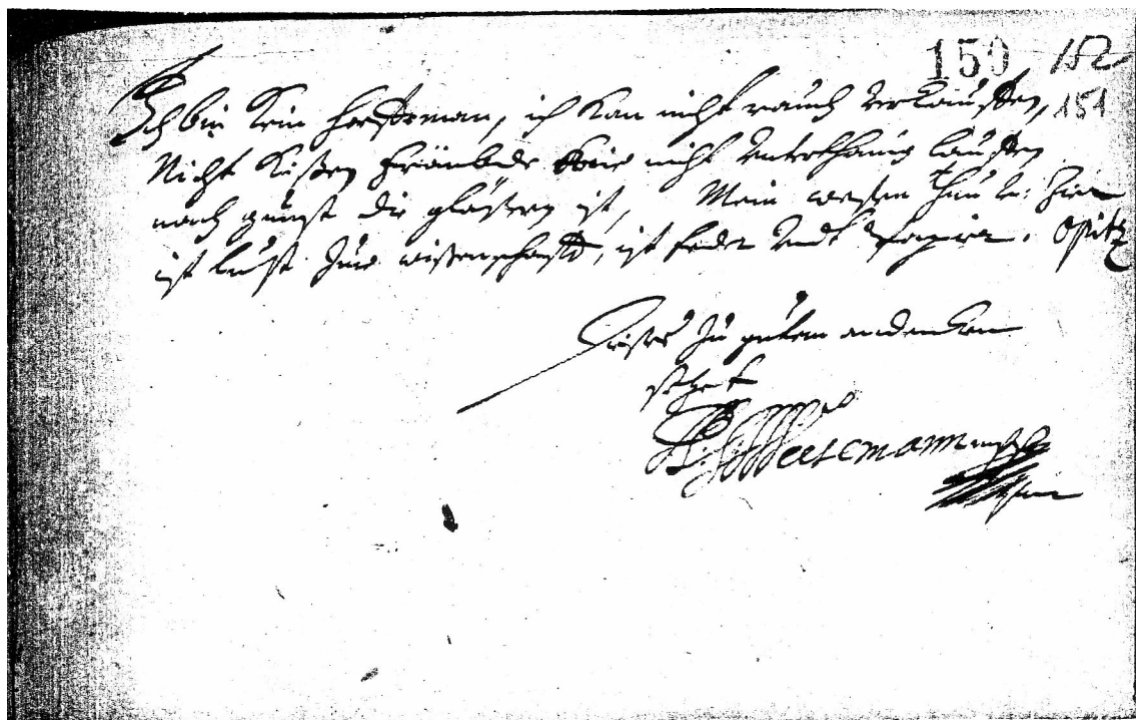 150 152
Ich bin kein hoffeman, ich kan nicht rauch verkauffen, 151
Nicht küßen främbde knie nicht unterthänig lauffen
nach gunst die gläßern ist, Mein weßen thun u: Zier
ist lust zur wißenschafft, ist feder undt Papier. Opitz
Dieses zu gutem andencken
setzet